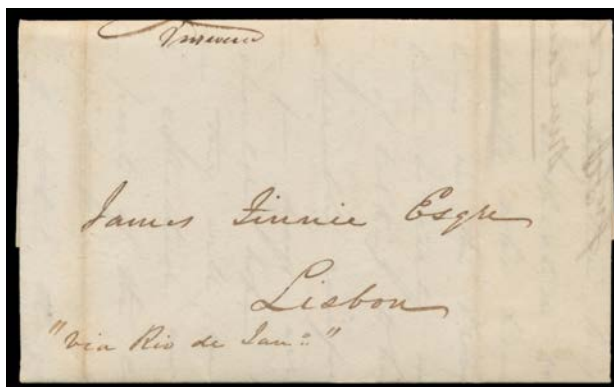 James Finnie Esqre
Lisbon
"via Rio de Jano:"